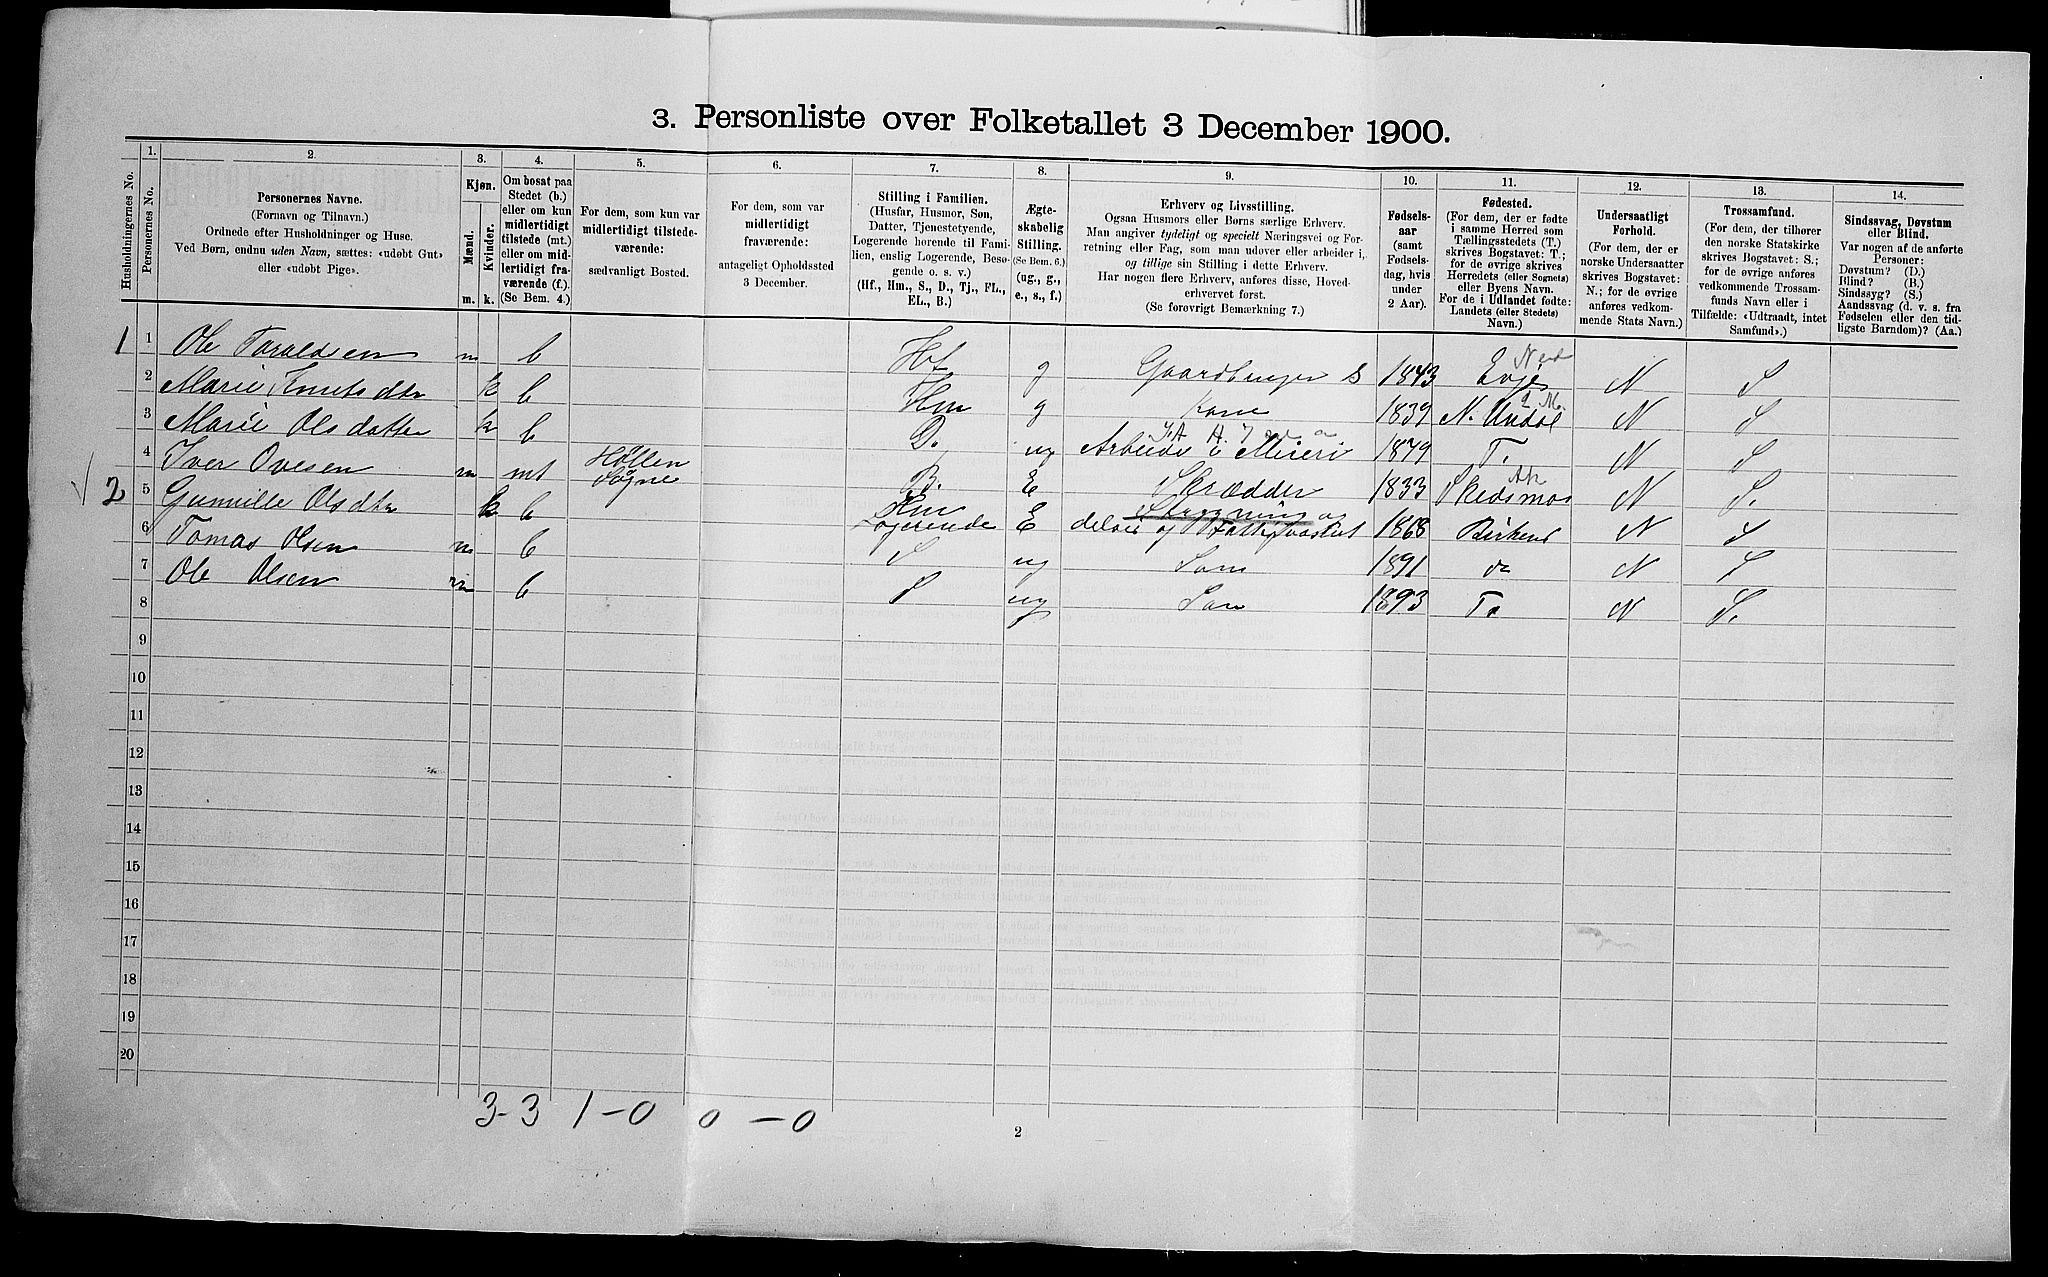 3. Personliste over Folketallet 3 December 1900.
Husholdningernes No.
1. Personernes No.
2. Personernes Navne.
(Fornavn og Tilnavn.)
Ordnede efter Husholdninger og Huse.
Ved Børn, endnu uden Navn, sættes: «udøbt Gut»
eller «udøbt Pige».
3. Kjøn.
Mænd. Kvinder.
m. k.
4. Om bosat paa
Stedet (b.)
eller om kun
midlertidigt
tilstede (mt.)
eller om mid-
lertidigt fra-
værende (f.).
(Se Bem. 4.)
5. For dem, som kun var
midlertidigt tilstede-
værende:
sædvanligt Bosted.
6. For dem, som var
midlertidigt
fraværende:
antageligt Opholdssted
3 December.
7. Stilling i Familien.
(Husfar, Husmor, Søn,
Datter, Tjenestetyende,
Logerende hørende til Fami-
lien, enslig Logerende, Besø-
gende o. s. v.)
(Hf., Hm., S., D., Tj., FL.,
EL., B.)
8. Ægte-
skabelig
Stilling.
(Se Bem. 6.)
(ug., g.,
e., s., f.)
9. Erhverv og Livsstilling.
Ogsaa Husmors eller Børns særlige Erhverv.
Man angiver tydeligt og specielt Næringsvei og For-
retning eller Fag, som man udøver eller arbeider i,
og tillige sin Stilling i dette Erhverv.
Har nogen flere Erhverv, anføres disse, Hoved-
erhvervet først.
(Se forøvrigt Bemærkning 7.)
10. Fødsels-
aar
(samt
Fødsels-
dag, hvis
under
2 Aar).
11. Fødested.
(For dem, der er fødte
i samme Herred som
Tællingsstedets (T.)
skrives Bogstavet: T.;
for de øvrige skrives
Herredets (eller Sognets)
eller Byens Navn.
For de i Udlandet fødte:
Landets (eller Stedets)
Navn.)
12. Undersaatligt
Forhold.
(For dem, der er
norske Undersaatter
skrives Bogstavet:
N.; for de øvrige
anføres vedkom-
mende Stats Navn.)
13. Trossamfund.
(For dem, der tilhører
den norske Statskirke
skrives Bogstavet: S.;
for de øvrige anføres
vedkommende Trossam-
funds Navn eller i
Tilfælde: «Udtraadt, intet
Samfund».)
14. Sindssvag, Døvstum
eller Blind.
Var nogen af de anførte
Personer:
Døvstum? (D.)
Blind? (B.)
Sindssyg? (S.)
Aandssvag (d. v. s. fra
Fødselen eller den tid-
ligste Barndom)? (Aa.)
1 1 Ole Taraldsen m b Hf g Gaardbruger S 1843 Evje Ned N S
2 Marie Knutsdtr k b Hm g Kone 1839 N. Undal L. M. N S
3 Marie Olsdatter k b D. ug Arbeide i Mineri 1879 T. N S
4 Iver Ovesen m mt Høllen Søgne B. E Skrædder 1833 Skedsmo Ak N S.
2 5 Gunnille Olsdtr k b Hm Logerende E delvis af Fattigvæsenet 1868 Birkens N S
6 Tomas Olsen m b S ug Søn 1891 do N S
7 Ole Olsen m b S ug Søn 1893 T. N S.
8
9
10
11
12
13
14
15
16
17
18
19
20
3-3 1-0 0-0
2